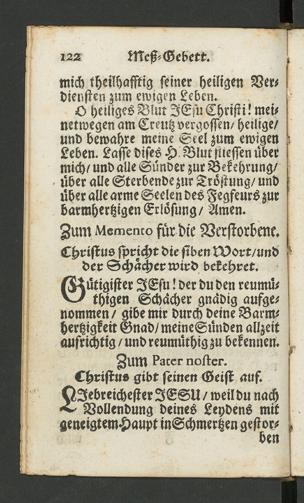 122 Meß-Gebett.
mich theilhafftig seiner heiligen Ver-
diensten zum ewigen Leben.
O heiliges Blut JEsu Christi! mei-
netwegen am Creutz vergossen/ heilige/
und bewahre meine Seel zum ewigen
Leben. Lasse dises H. Blut fliessen über
mich/ und alle Sünder zur Bekehrung/
über alle Sterbende zur Tröstung/ und
über alle arme Seelen des Fegfeurs zur
barmhertzigen Erlösung/ Amen.
Zum Memento für die Verstorbene.
Christus spricht die siben Wort/ und
der Schächer wird bekehret.
Gütigister JEsu! der du den reumü-
thigen Schächer gnädig aufge-
nommen/ gibe mir durch deine Barm-
hertzigkeit Gnad/ meine Sünden allzeit
aufrichtig/ und reumüthig zu bekennen.
Zum Pater noster.
Christus gibt seinen Geist auf.
LJebreichester JESU/ weil du nach
Vollendung deines Leydens mit
geneigtem Haupt in Schmertzen gestor-
ben